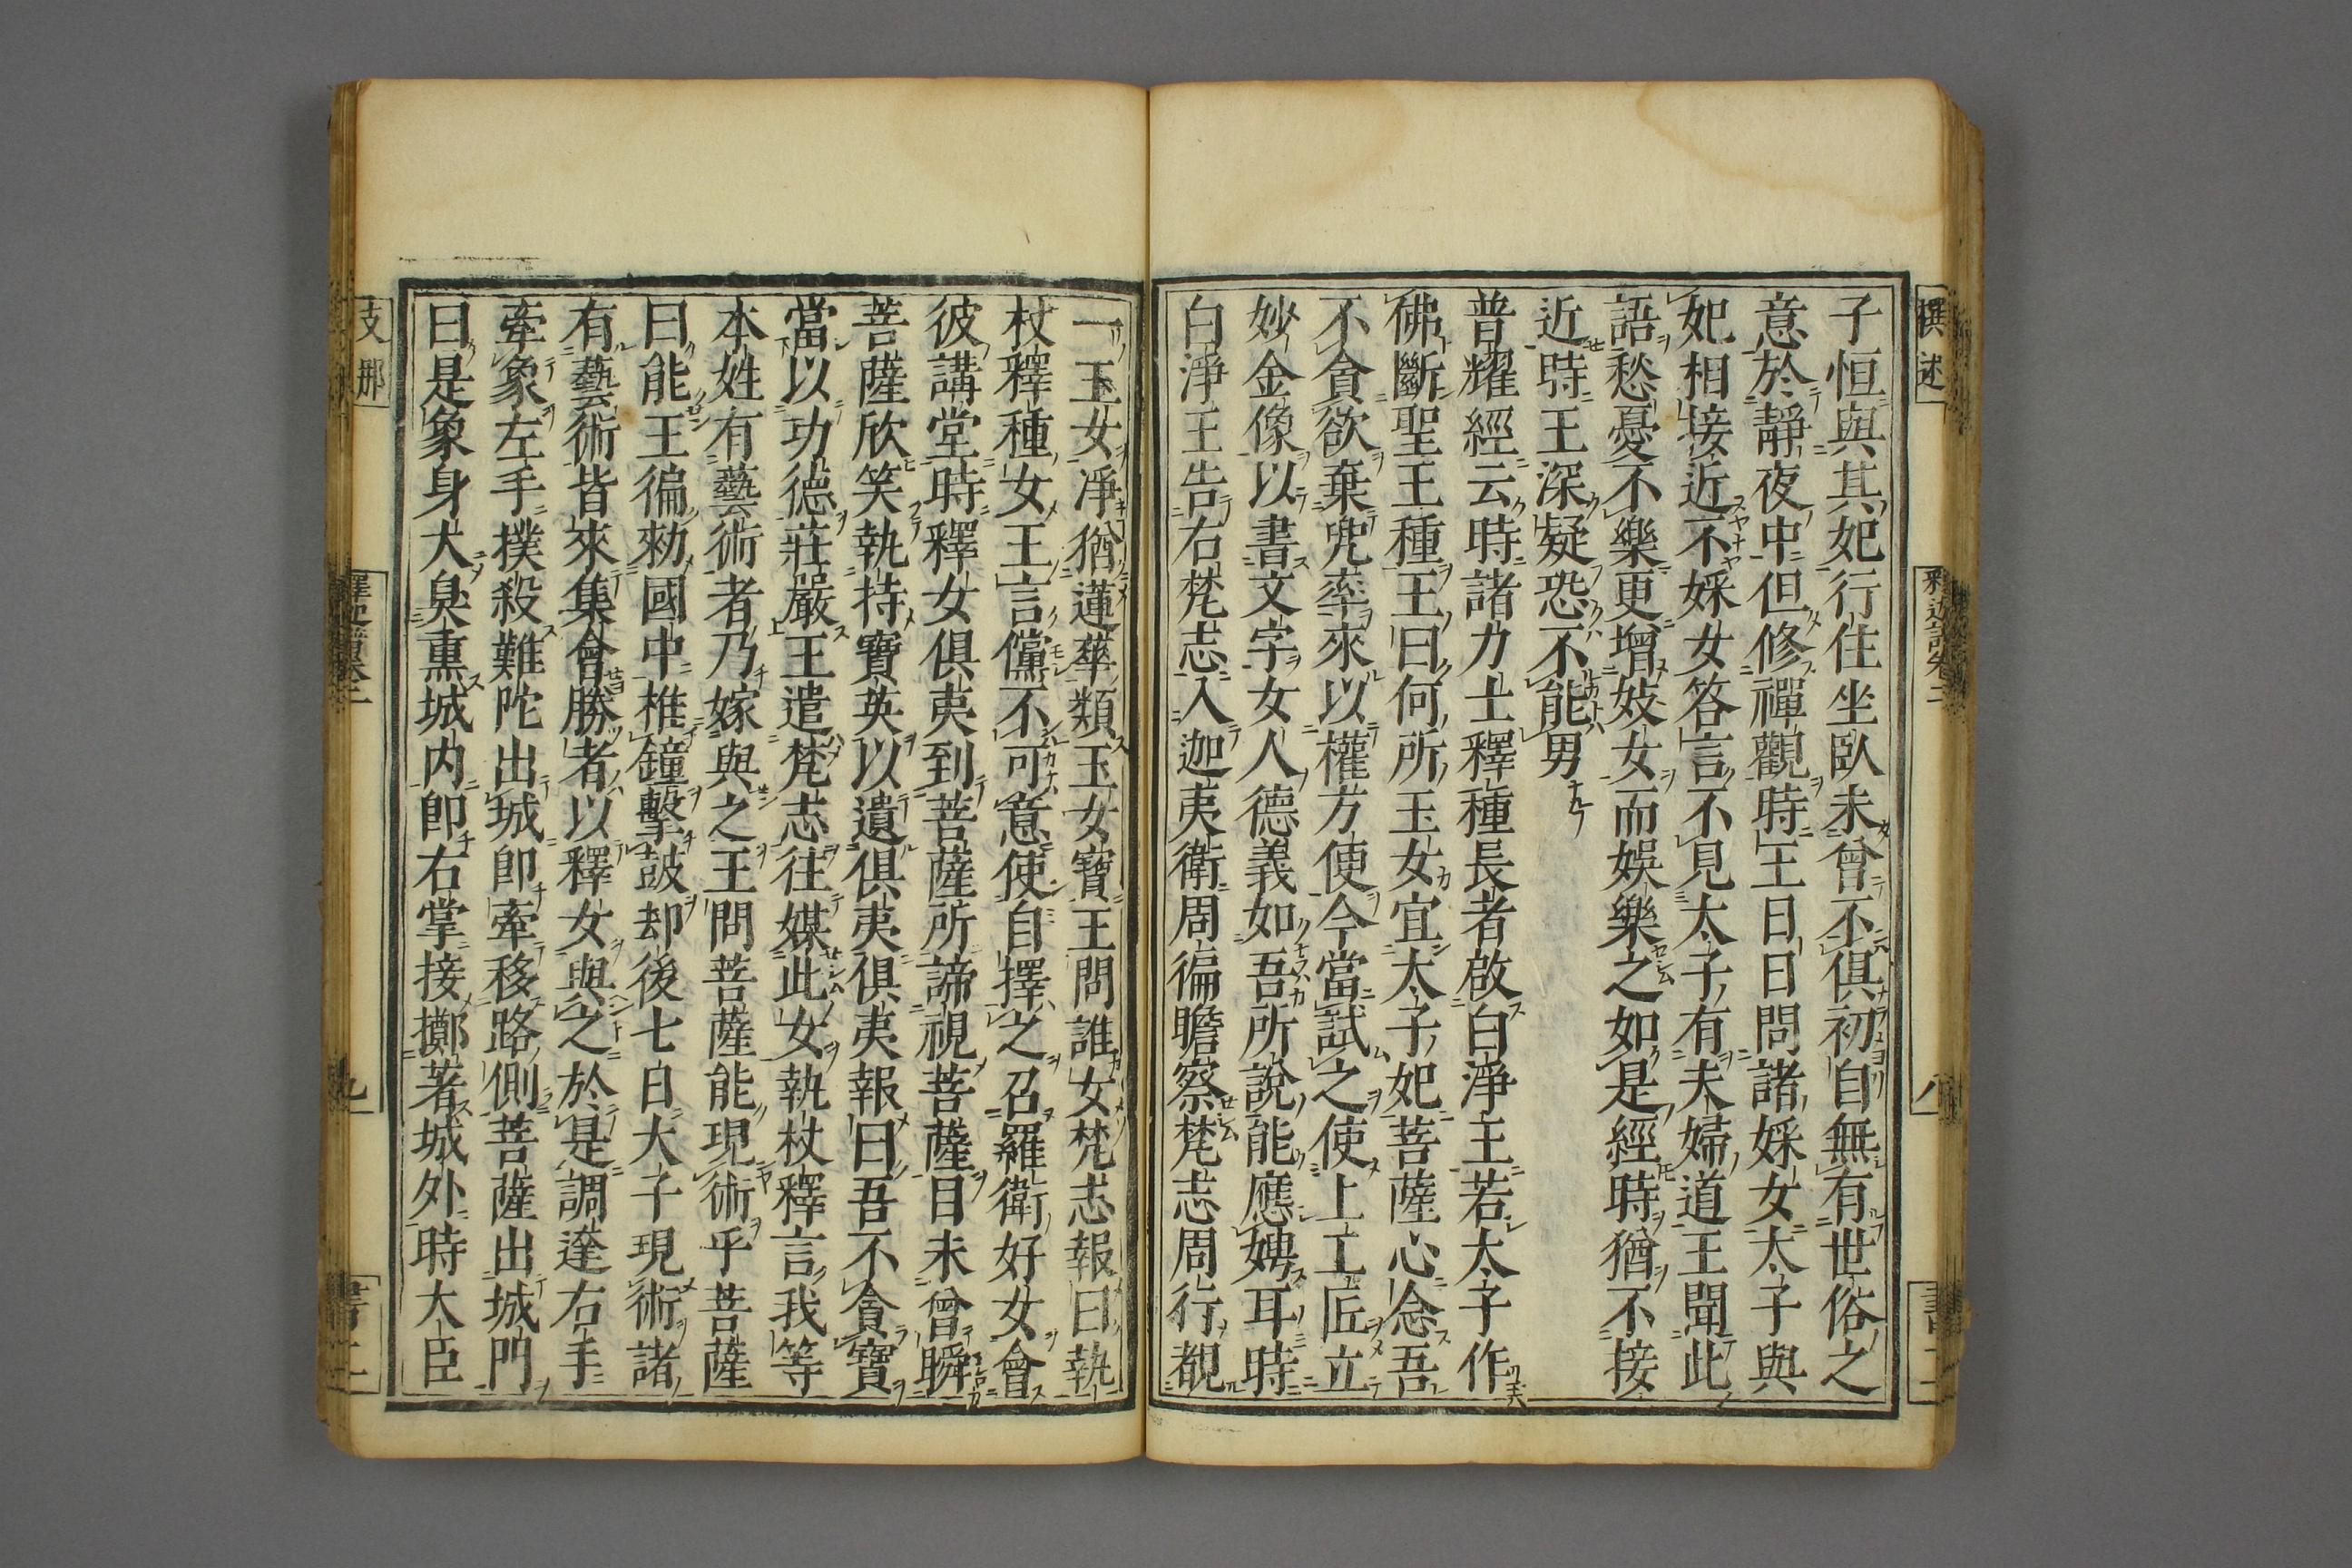 撰述
釋迦譜卷二
八
書二
子恒與其妃行住坐臥未曾不俱初自無有世俗之
意於靜夜中但修禪觀時王日日問諸婇女太子與
妃相接近不婇女答言不見太子有夫婦道王聞此
語愁憂不樂更增妓女而娛樂之如是經時猶不接
近時王深疑恐不能男
普耀經云時諸力士釋種長者啟白淨王若太子作
佛斷聖王種王曰何所玉女宜太子妃菩薩心念吾
不貪欲棄兜率來以權方便今當試之使上工匠立
妙金像以書文字女人德義如吾所說能應娉耳時
白淨王告右梵志入迦夷衛周徧瞻察梵志周行覩
一玉女淨猶蓮華類玉女寶王問誰女梵志報曰執
杖釋種女王言儻不可意使自擇之召羅衛好女會
彼講堂時釋女俱夷到菩薩所諦視菩薩目未曾瞬
菩薩欣笑執持寶英以遺俱夷俱夷報曰吾不貪寶
當以功德莊嚴王遣梵志往媒此女執杖釋言我等
本姓有藝術者乃嫁與之王問菩薩能現術乎菩薩
曰能王徧勅國中椎鐘擊鼓却後七日大子現術諸
有藝術皆來集會勝者以釋女與之於是調達右手
牽象左手撲殺難陀出城卽牽移路側菩薩出城門
曰是象身大臭熏城内卽右掌接擲著城外時大臣
支那
釋迦譜卷二
九
書二